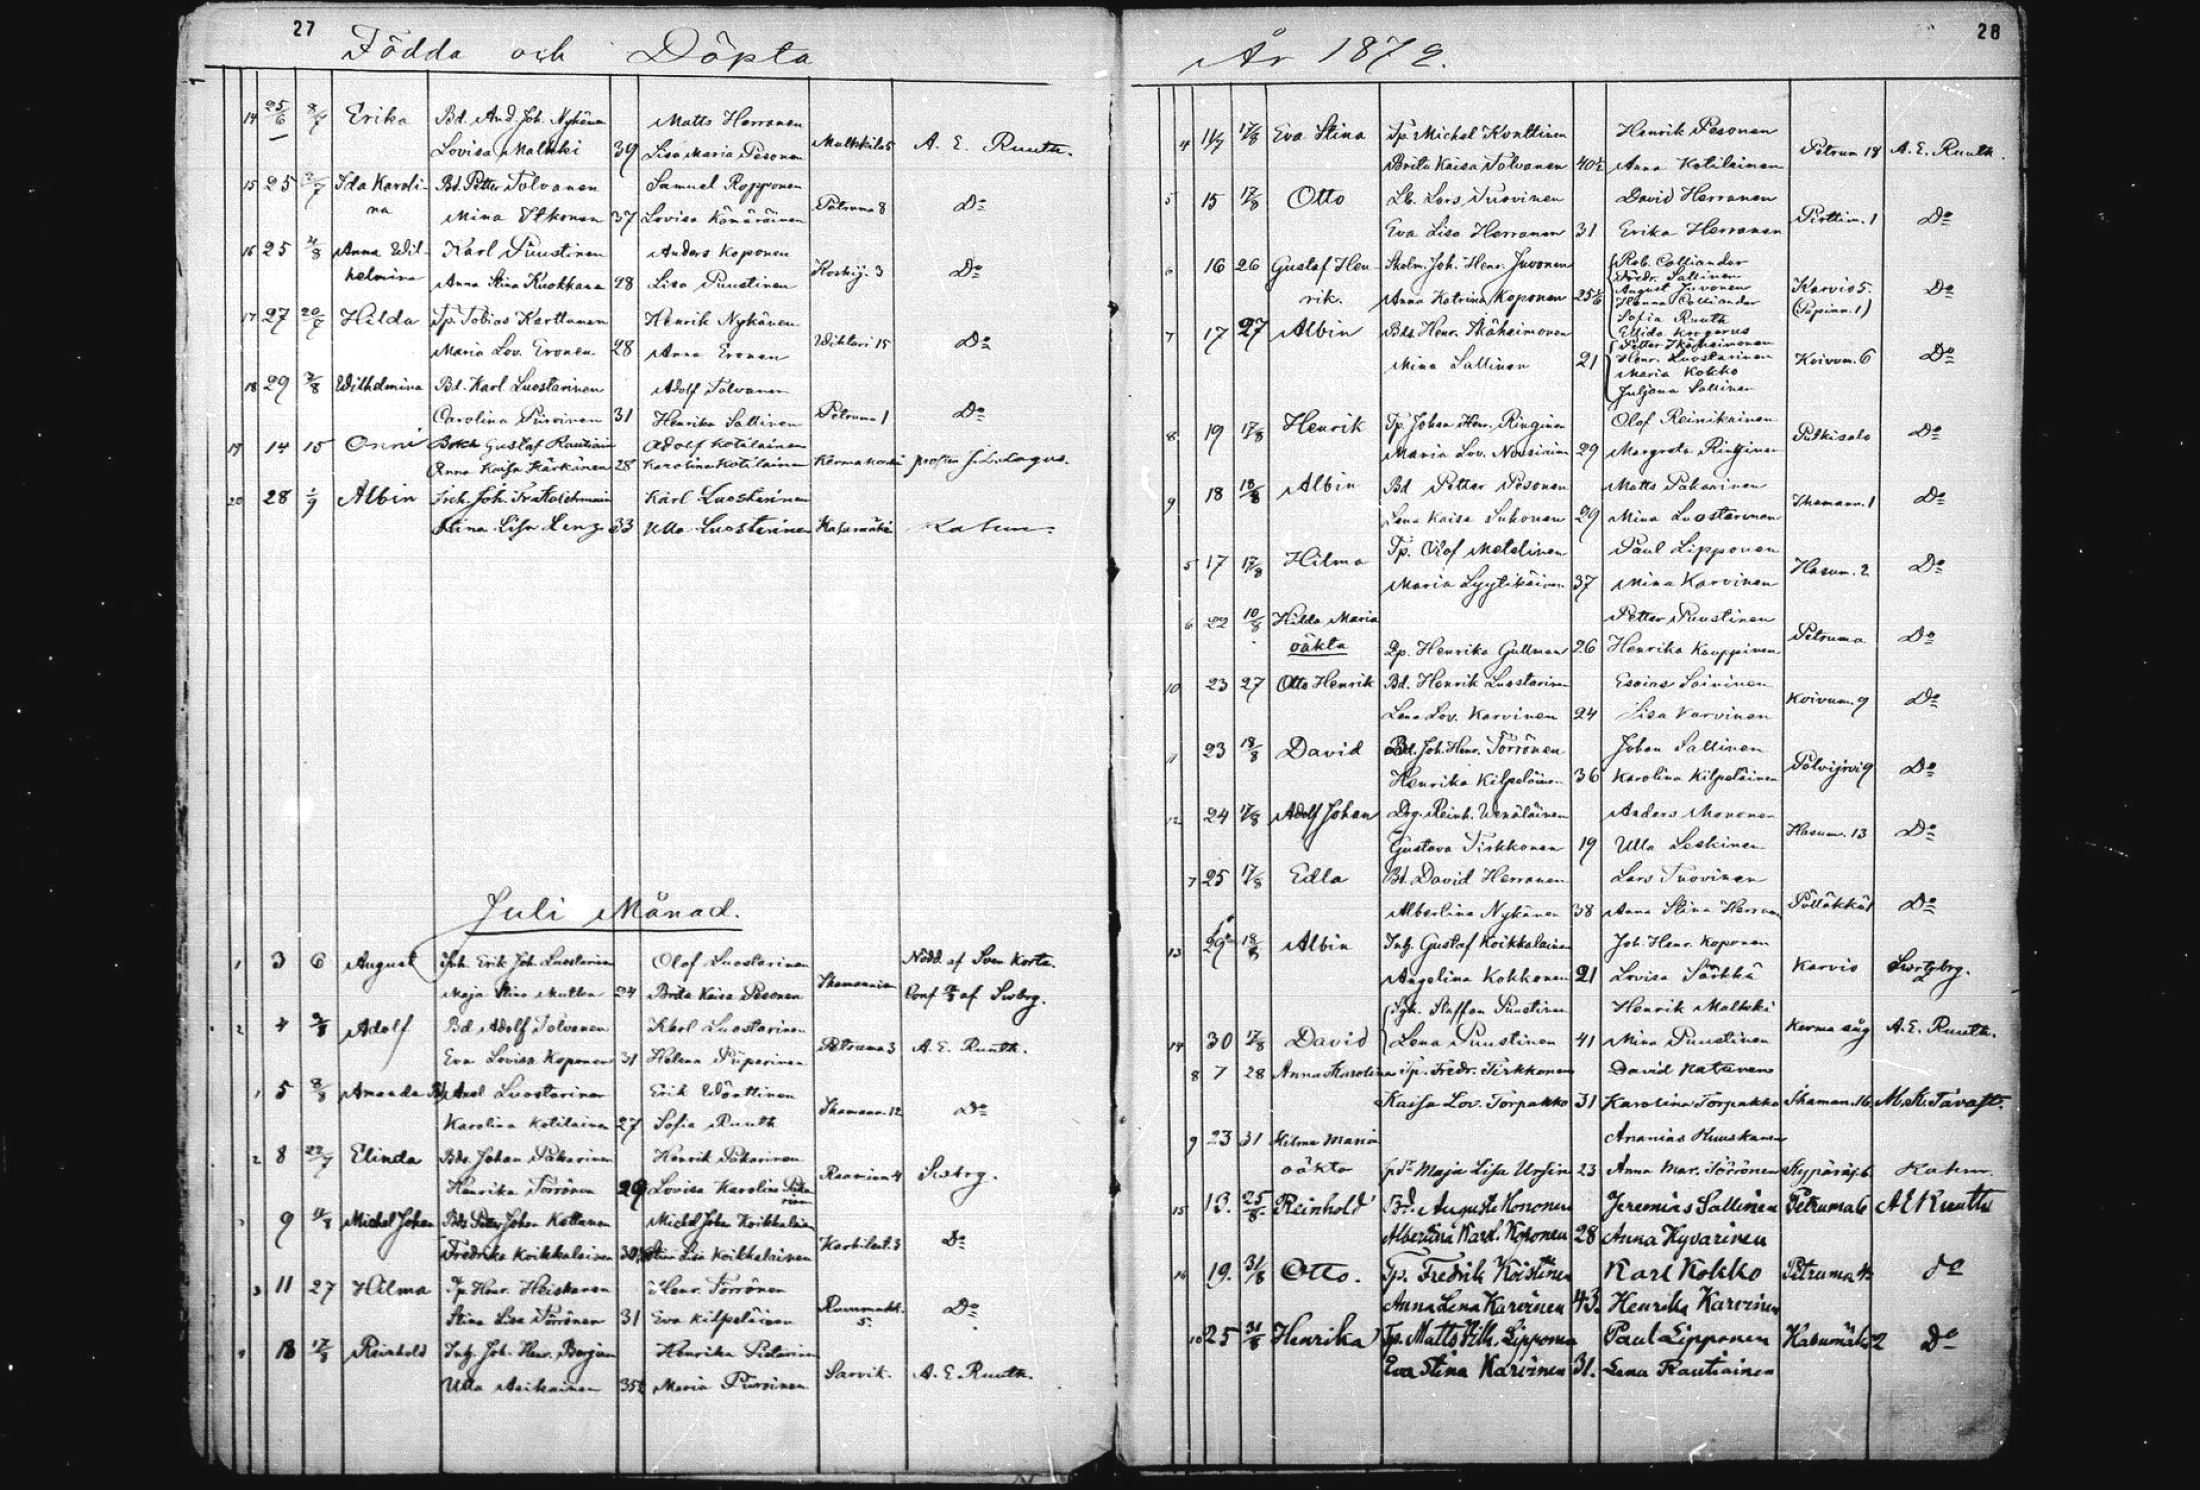 27
Födda och Döpta
14 25/6 8/7 Erika Bd. And. Joh. Nykänen Matts Herranen
Lovisa Malkki 39 Lisa Maria Pesonen Malkkila 5 A. E. Ruuth.
15 25 Ida Karoli- Bd. Petter Tolvanen Samuel Ropponen
na Mina Itkonen 37 Lovisa Kämäräinen Petruma 8 Do
16 25 4/8 Anna Wil- Karl Puustinen Anders Koponen
helmina Anna Stina Kuokkanen 28 Lisa Puustinen Koskij. 3 Do
17 27 20/7 Hilda Tp. Tobias Karttunen Henrik Nykänen
Maria Lov. Eronen 28 Anna Eronen Wihtari 15 Do
18 29 2/8 Wilhelmina Bd. Karl Luostarinen Adolf Tolvanen
Carolina Purvinen 31 Henrika Sallinen Petruma 1 Do
19 14 15 Onni Gustaf Rautiain Adolf Kotilainen
Anna Kaisa Kärkänen 28 Karolina Kotilainen Kermakoski J. L. Lagus.
20 28 1/9 Albin Joh. Karl Luostarinen
Stina Lisa Lenz 33 Ulla Luostarinen Kasurmäki
Juli Månad.
1 3 6 August Inh. Erik Joh. Luostarinen Olof Luostarinen Nöddöp. af Sven Korta.
Maja Stina 24 Brita Kaisa Pesonen Conf. af Swbrg.
2 4 2/8 Adolf Bd Adolf Tolvanen Karl Luostarinen
Eva Lovisa Koponen 31 Helena Piiparinen Petruma 3 A. E. Ruuth.
1 5 8/8 Amanda Axel Luostarinen Erik Wänttinen
Karolina Kotilainen 27 Sofia Ruuth 12 Do
2 8 22/7 Elinda Bds. Johan Pakarinen Henrik Pakarinen
Henrika Törrönen 29 Lovisa Karolina Paka- Raninen 4 Swbrg.
rinen
3 9 4/8 Michel Johan Johan Kettunen Michel Johan Koikkalainen
Fredrika Koikkalainen Lisa Koikkalainen Do
3 11 27 Hilma Tp. Henr. Heiskanen Henr. Törrönen
Stina Lisa Törrönen 31 Eva Kilpeläinen 5. Do
4 13 17/8 Reinhold Inh. Joh. Henr. Henrika Pietarinen
Ulla Asikainen 35 Maria Purvinen Sarvik. A. E. Ruuth.
28
År 1879.
4 11/7 17/8 Eva Stina Tp. Michel Konttinen Henrik Pesonen
Brita Kaisa Tolvanen 40½ Anna Kotilainen Petrum 18 A. E. Ruuth.
5 15 17/8 Otto Lb. Lars Tuovinen David Herranen
Eva Lisa Herranen 31 Erika Herranen Pirttim. 1 Do
6 16 26 Gustaf Hen- Skolm. Joh. Henr. Juvonen Rob. Colliander
Fredr. Sallinen
rik. Anna Katrina Koponen 25 August Juvonen Karvio 5.
Hanna Colliander (Papinn. 1) Do
Sofia Ruuth
Ellida Krogerus
7 17 27 Albin Bds. Henr. Ikäheimonen Petter Ikäheimonen
Mina Sallinen 21 Henr. Luostarinen Koivum. 6 Do
Maria Kokko
Juljana Sallinen
8 19 17/8 Henrik Tp. Johan Henr. Ringinen Olof Reinikainen
Maria Lov. Nousiainen 29 Margreta Ringinen Putkisalo Do
9 18 18/8 Albin Bd Petter Pesonen Matts Pakarinen
Lena Kaisa Suhonen 29 Mina Luostarinen 1 Do
5 17 17/8 Hilma Tp. Olof Matelinen Paul Lipponen
Maria Lyytikäinen 37 Mina Karvinen Hasum. 2 Do
6 22 10/8 Hilda Maria Petter Puustinen
oäkta Henrika Gullman 26 Henrika Kauppinen Petruma Do
10 23 27 Otto Henrik Bd. Henrik Luostarinen Esaias Soininen
Lena Lov. Karvinen 24 Lisa Karvinen Koivum. 9 Do
11 23 18/8 David Bd. Joh. Henr. Törrönen Johan Sallinen
Henrika Kilpeläinen 36 Karolina Kilpeläinen Polvijrvi 9 Do
12 24 17/8 Adolf Johan Drg. Reinh. Wenäläinen Anders Mononen
Gustava Tirkkonen 19 Ulla Leskinen Hasum. 13 Do
7 25 17/8 Edla Bd. David Herranen Lars Tuovinen
Albertina Nykänen 38 Anna Stina Herranen Pölläkkä 1 Do
13 29 18/8 Albin Inh. Gustaf Koikkalainen Joh. Henr. Koponen
Angelina Kokkonen 21 Lovisa Särkkä Karvio Swrtzbrg.
Staffan Puustinen Henrik Malkki
14 30 17/8 David Lena Puustinen 41 Mina Puustinen Kerma såg A. E. Ruuth.
8 7 28 Anna Karolina Tp. Fredr. Tirkkonen David Natunen
Kaisa Lov. Torpakko 31 Karolina Torpakko 16 M. K. Tavast.
9 23 31 Hilma Maria Ananias Kuuskanen
oäkta Maja Lisa Ursin 23 Anna Mar. Törrönen Kypäräj. 6
15 13. 25/8. Reinhold Bd. August Mononen Jeremias Sallinen Petruma 6 A E Ruuth
Albertina Karol. Koponen 28 Anna Hyvärinen
16 19. 31/8 Otto. Tp. Fredrik Koistinen Karl Kokko Petruma 4 do
Anna Lena Karvinen 43. Henrika Karvinen
10 25 31/8 Henrika Tp. Matts Vilh. Lipponen Paul Lipponen Hasumäki 2 Do
Eva Stina Karvinen 31. Lena Rautiainen